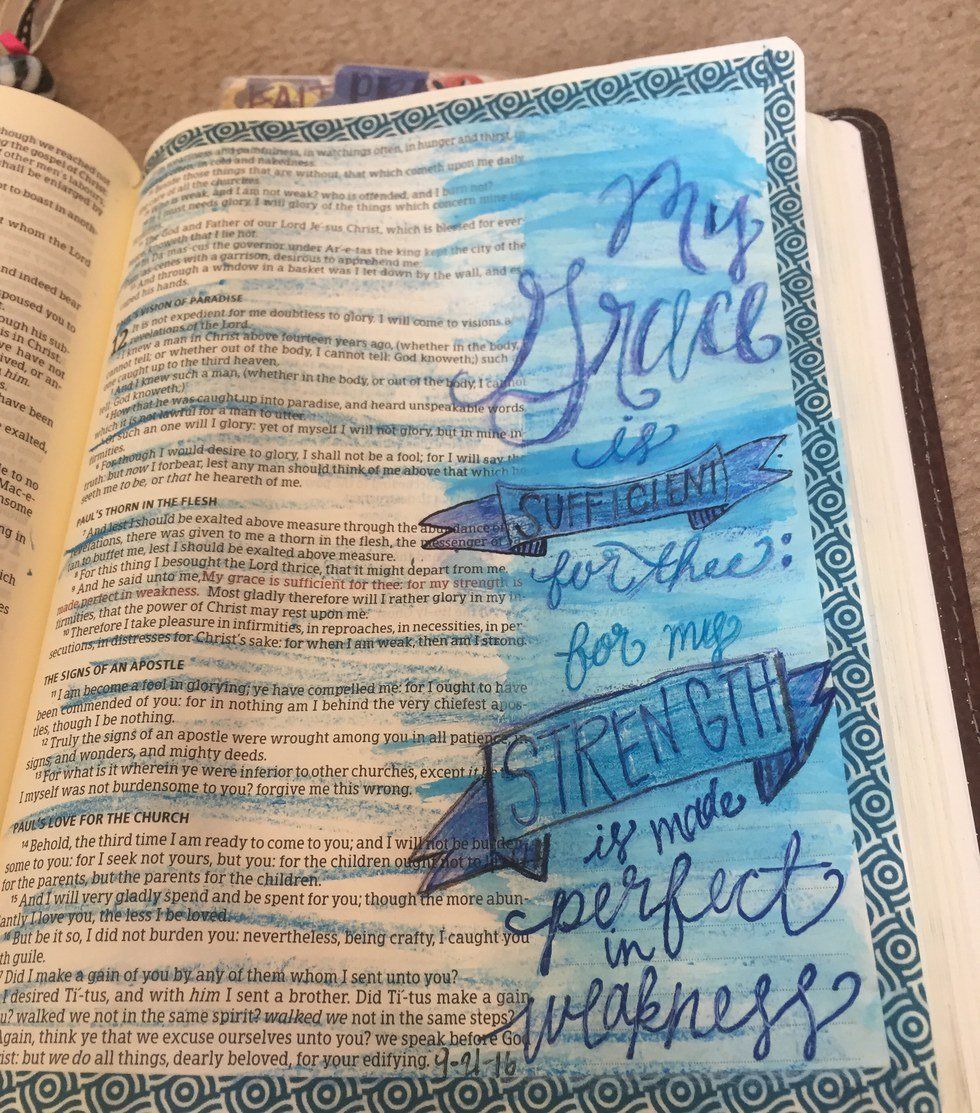 FAITH
PRAY
though we reached
the gospel of Christ:
other men's labours;
shall be enlarged by
t to boast in anoth-
t whom the Lord
nd indeed bear
spoused you to
is in Christ.
we have not
ived, or an-
him.
s.
have been
exalted,
le to no
Mac-e-
nsome
ng in
ich
es
and painfulness, in watchings often, in hunger and thirst, in
in cold and nakedness.
those things that are without, that which cometh upon me daily
of all the churches.
is weak, and I am not weak? who is offended, and I burn not?
I must needs glory, I will glory of the things which concern mine
The God and Father of our Lord Je-sus Christ, which is blessed for ever-
knoweth that I lie not.
Da-mas-cus the governor under Ar-e-tas the king kept the city of the
as-cenes with a garrison, desirous to apprehend me:
And through a window in a basket was I let down by the wall, and es-
ped his hands.
VISION OF PARADISE
12 It is not expedient for me doubtless to glory. I will come to visions
revelations of the Lord.
I knew a man in Christ above fourteen years ago, (whether in the body,
cannot tell; or whether out of the body, I cannot tell: God knoweth;) such
one caught up to the third heaven.
And I knew such a man, (whether in the body, or out of the body, I cannot
tell: God knoweth;)
4 How that he was caught up into paradise, and heard unspeakable words,
which it is not lawful for a man to utter.
Of such an one will I glory: yet of myself I will not glory, but in mine in-
firmities.
6 For though I would desire to glory, I shall not be a fool; for I will say the
truth: but now I forbear, lest any man should think of me above that which he
seeth me to be, or that he heareth of me.
PAUL'S THORN IN THE FLESH
7 And lest I should be exalted above measure through the abundance of
revelations, there was given to me a thorn in the flesh, the messenger of
tan to buffet me, lest I should be exalted above measure.
8 For this thing I besought the Lord thrice, that it might depart from me.
9 And he said unto me, My grace is sufficient for thee: for my strength is
made perfect in weakness. Most gladly therefore will I rather glory in my in-
firmities, that the power of Christ may rest upon me.
10 Therefore I take pleasure in infirmities, in reproaches, in necessities, in per-
secutions, in distresses for Christ's sake: for when I am weak, then am I strong.
THE SIGNS OF AN APOSTLE
11 I am become a fool in glorying; ye have compelled me: for I ought to have
been commended of you: for in nothing am I behind the very chiefest apos-
tles, though I be nothing.
12 Truly the signs of an apostle were wrought among you in all patience,
signs, and wonders, and mighty deeds.
13 For what is it wherein ye were inferior to other churches, except it
I myself was not burdensome to you? forgive me this wrong.
PAUL'S LOVE FOR THE CHURCH
14 Behold, the third time I am ready to come to you; and I will not be burden-
some to you: for I seek not yours, but you: for the children ought not to
for the parents, but the parents for the children.
15 And I will very gladly spend and be spent for you; though the more abun-
antly I love you, the less I be loved.
16 But be it so, I did not burden you: nevertheless, being crafty, I caught you
th guile.
Did I make a gain of you by any of them whom I sent unto you?
I desired Ti-tus, and with him I sent a brother. Did Ti-tus make a gain
u? walked we not in the same spirit? walked we not in the same steps?
Again, think ye that we excuse ourselves unto you? we speak before God
rist: but we do all things, dearly beloved, for your edifying. 9-21-16
My
Grace
is
SUFFICIENT
for thee:
for my
STRENGTH
is made
perfect
in
weakness